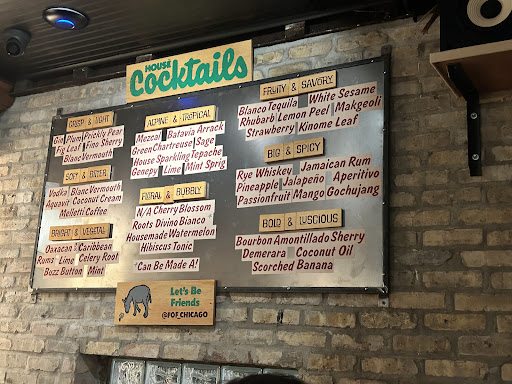 HOUSE
Cocktails
CRISP & LIGHT
Gin Plum Prickly Pear
Fig Leaf Fino Sherry
Blanc Vermouth
SOFT & BITTER
Vodka Blanc Vermouth
Aquavit Coconut Cream
Melletti Coffee
BRIGHT & VEGETAL
Oaxacan & Caribbean
Rums Lime Celery Root
Buzz Button Mint
ALPINE & TROPICAL
Mezcal Batavia Arrack
Green Chartreuse Sage
House Sparkling Tepache
Genepy Lime Mint Sprig
FLORAL & BUBBLY
N/A Cherry Blossom
Roots Divino Bianco
Housemade Watermelon
Hibiscus Tonic
*Can Be Made A!
FRUITY & SAVORY
Blanco Tequila White Sesame
Rhubarb Lemon Peel Makgeoli
Strawberry Kinome Leaf
BIG & SPICY
Rye Whiskey Jamaican Rum
Pineapple Jalapeño Aperitivo
Passionfruit Mango Gochujang
BOLD & LUSCIOUS
Bourbon Amontillado Sherry
Demerara Coconut Oil
Scorched Banana
Let's Be
Friends
@FOF_CHICAGO